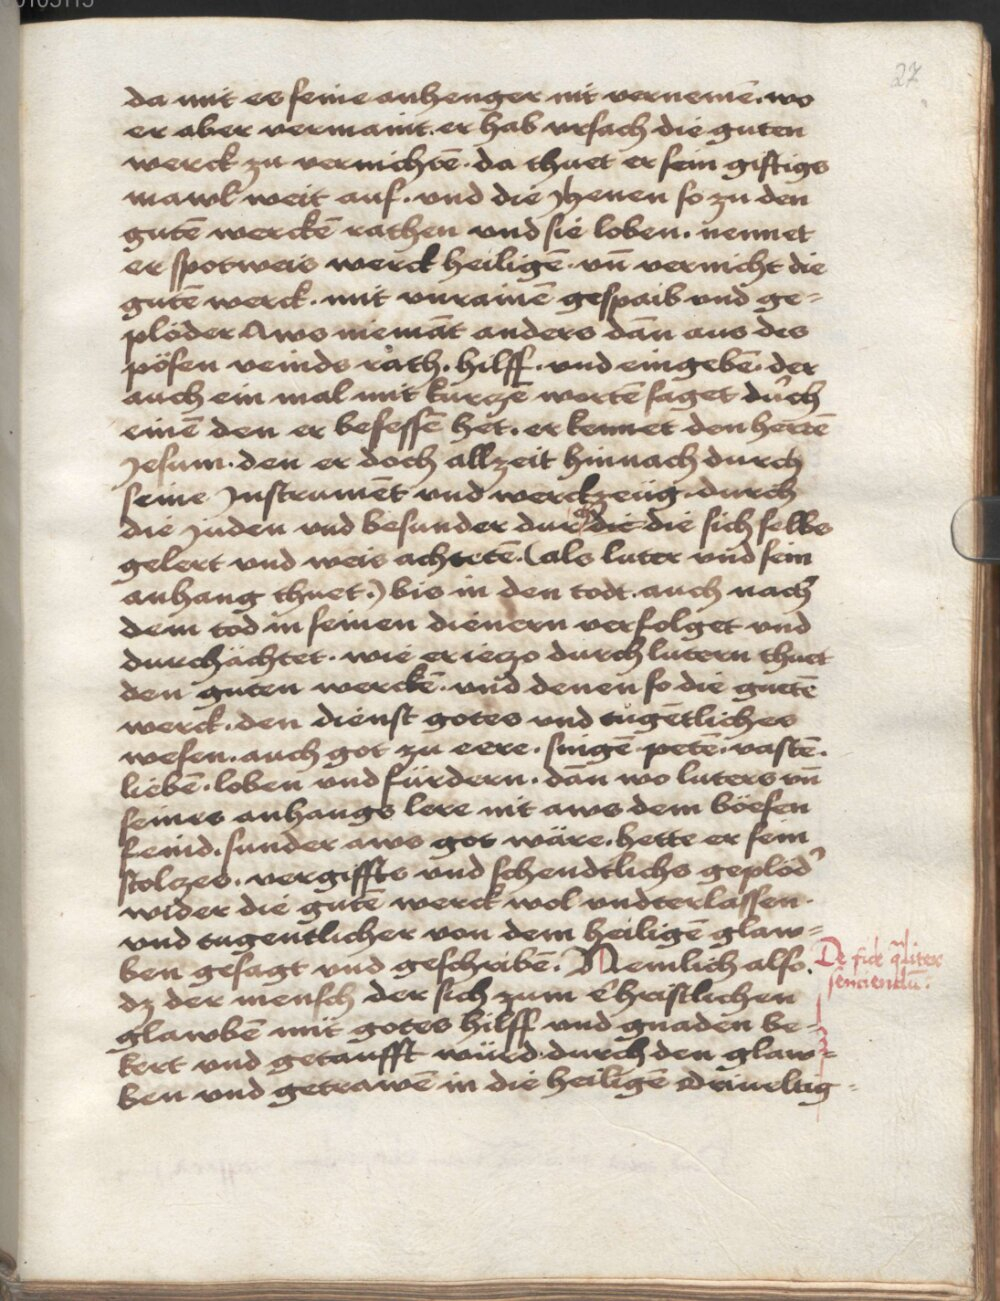 27
da mit es seine anhenger nit vernemē. wo
er aber vermaint. er hab vrsach die guten
werck zu vernichtē. da thuet er sein giftigs
mawl weit auf. vnd die jhenen so zu den
gutē werckē rathen vnd sie loben. nennet
er spotweis werck heiligē. vn̄ vernicht die
gutē werck. mit vnrainē gespaib vnd ge=
plöder Aws niemāt anders dān aus des
pösen veinds rath. hilff. vnd eingebē. der
auch ein mal mit kurczē wortē saget durch
einē den er besessē het. er kennet den herrē
Jesum. den er doch allzeit hinnach durch
seine Jnstrumēt vnd werckzeüg. durch
die Juden vnd besunder durch die die sich selbs
gelert vnd weis achtetē. (als luter vnd sein
anhang thuet.) bis in den todt. auch nach
dem tod in seinen dienern verfolget vnd
durchächtet. wie er ieczo durch lutern thuet
den guten werckē. vnd denen so die guetē
werck. den dienst gotes vnd tugētliches
wesen. auch got zu eere. singē petē. vastē.
liebē. loben vnd fürdern. dān wo luters vn̄
seines anhangs lere nit aws dem böesen
feind. sunder aws got wäre. hette er sein
stolczes. vergiffts vnd schendtlichs geplöd'
wider die gutē werck wol vndterlassen.
vnd tugentlicher von dem heiligē glaw=
ben gesagt vnd geschriebē. Nemlich also.
dz der mensch der sich zum christlichen
glawbē mit gotes hilff vnd gnaden be=
kert vnd getaufft würd. durch den glaw=
ben vnd getrawē in die heiligē driueltig=
De fide qͣliter
senciendū.